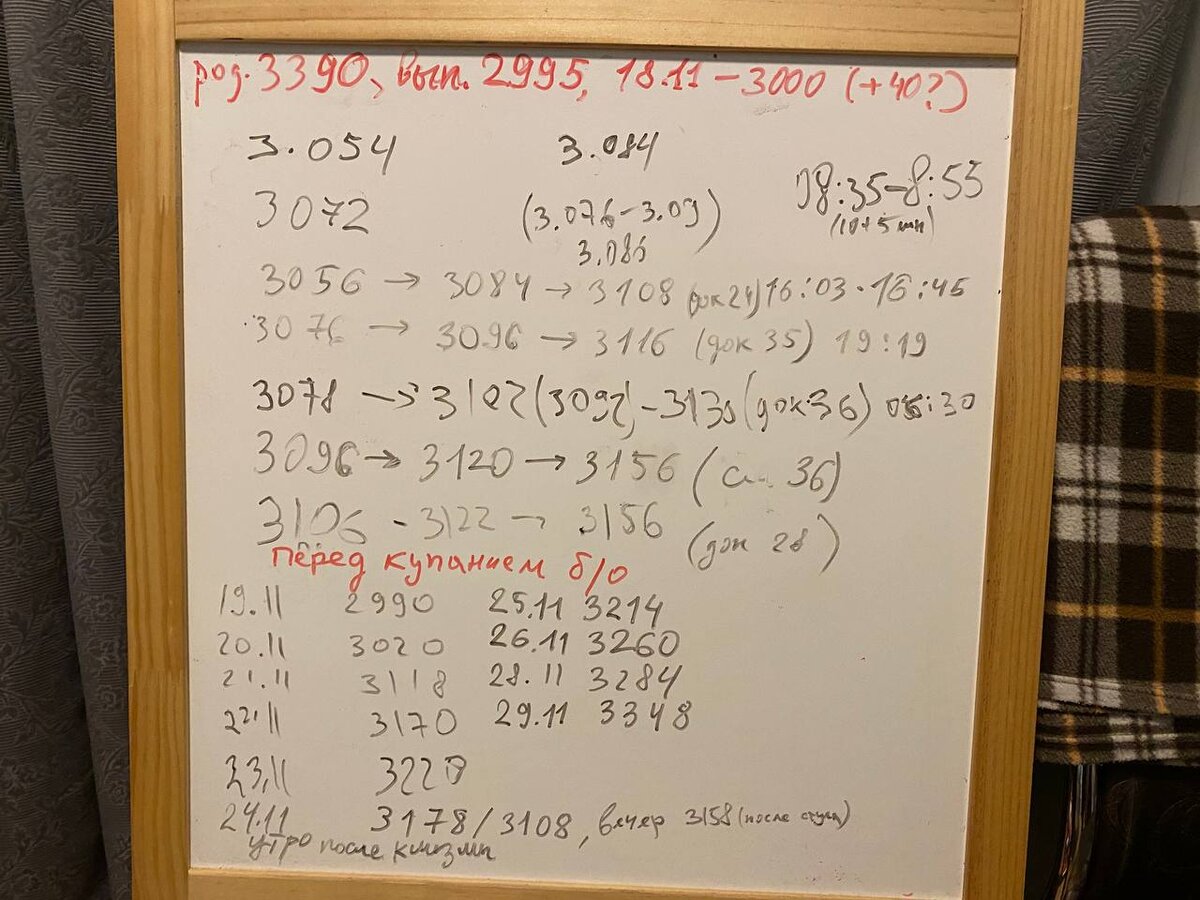 род. 3390, вып. 2995, 18.11 – 3000 (+40?)
3.054 3.084
8:35-8:55
3072 (3.076-3.09)
(10+5 мин)
3.086
3056 → 3084 → 3108 (док 24) 16:03-16:45
3076 → 3096 → 3116 (док 35) 19:19
3078 → 3102 (3092) - 3130 (док 36) 06:30
3096 → 3120 → 3156 ( 36)
3106 - 3122 → 3156 (док 28)
перед купанием б/о
19.11 2990 25.11 3214
20.11 3020 26.11 3260
21.11 3118 28.11 3284
22.11 3170 29.11 3348
23.11 3220
24.11 3178/3108, вечер 3158 (после стула)
утро после клизмы